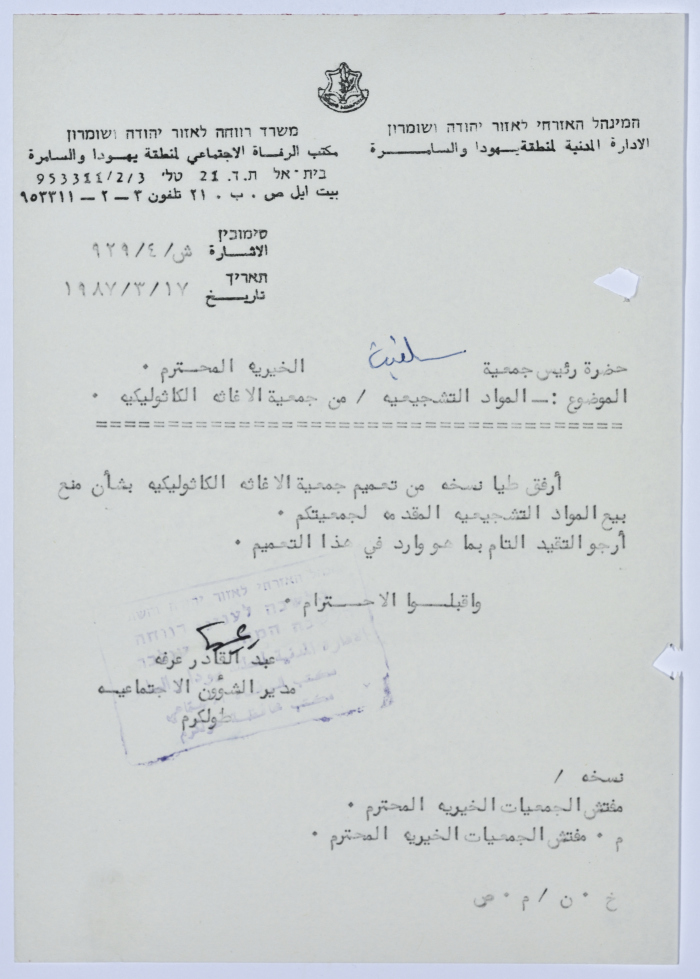 המינהל האזרחי לאזור יהודה ושומרון
الادارة المدنية لمنطقة يهودا والسامرة
משרד רווחה לאזור יהודה ושומרון
مكتب الرفاة الاجتماعي لمنطقة يهودا والسامرة
בית-אל ת.ד. 21 טלי 953311/2/3
بيت ايل ص . ب . ٢١ تلفون ٣ – ٢ – ٩٥٣٣١١
סימוכין
الاشارة ش/٤/٩٢٩
תאריך
تاريخ ١٩٨٧/٣/١٧
حضرة رئيس جمعية سلفيت الخيريه المحترم .
الموضوع :ـ المواد التشجيعيه / من جمعية الاغاثه الكاثوليكيه .
=====================================
أرفق طيا نسخه من تعميم جمعية الاغاثه الكاثوليكيه بشأن منع
بيع المواد التشجيعيه المقدمه لجمعيتكم .
أرجو التقيد التام بما هو وارد في هذا التعميم .
واقبلوا الاحترام .
عبد القادر عرفه
مدير الشؤون الاجتماعيه
طولكرم
نسخه /
مفتش الجمعيات الخيريه المحترم .
م . مفتش الجمعيات الخيريه المحترم .
خ . ن / م . ص